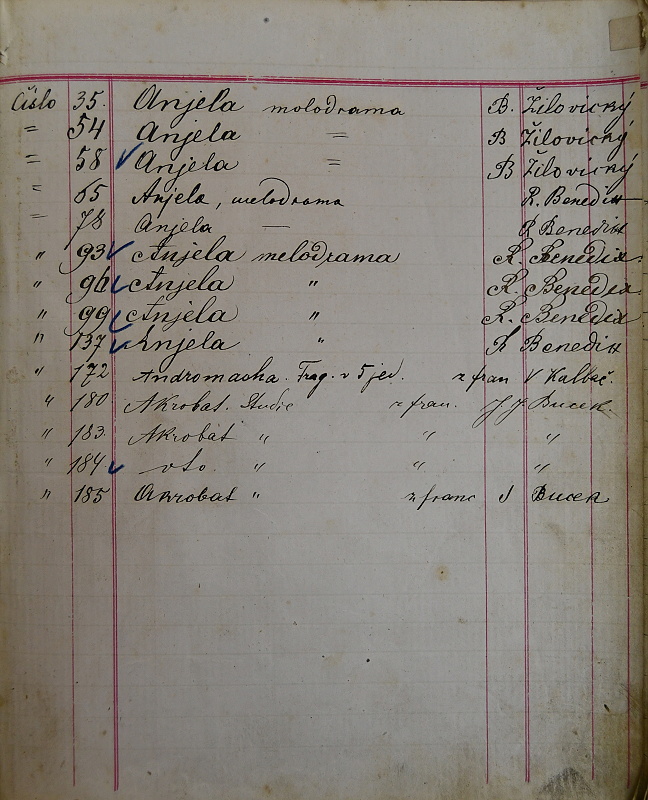 Číslo 35. Anjela molodrama B. Žilovický
= 54 Anjela = B Žilovický
= 58 Anjela = B Žilovický
= 65 Anjela, melodrama R. Benedix
= 78 Anjela — R Benedix
" 93 Anjela melodrama R. Benedix
" 96 Anjela " R. Benedix
" 99 Anjela " R. Benedix
" 137 Anjela " R Benedix
" 172 Andromacha. Trag. v 5 jed. z fran V Kalbáč.
" 180 Akrobat. Studie z fran. J J Bucek.
" 183. Akrobat " " "
" 184 vto. " " "
" 185 Akrobat " z franc J Bucek